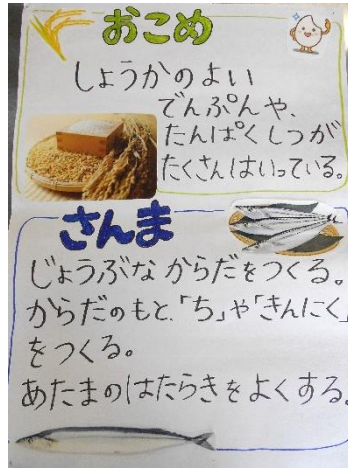 おこめ
しょうかのよい
でんぷんや、
たんぱくしつが
たくさんはいっている。
さんま
じょうぶなからだをつくる。
からだのもと、「ち」や「きんにく」
をつくる。
あたまのはたらきをよくする。